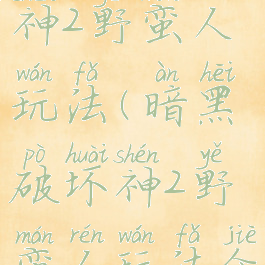 神2野蛮人
wán fǎ àn hēi
玩法(暗黑
pò huài shén yě
破坏神2野
mán rén wán fǎ jiè
蛮人玩法介